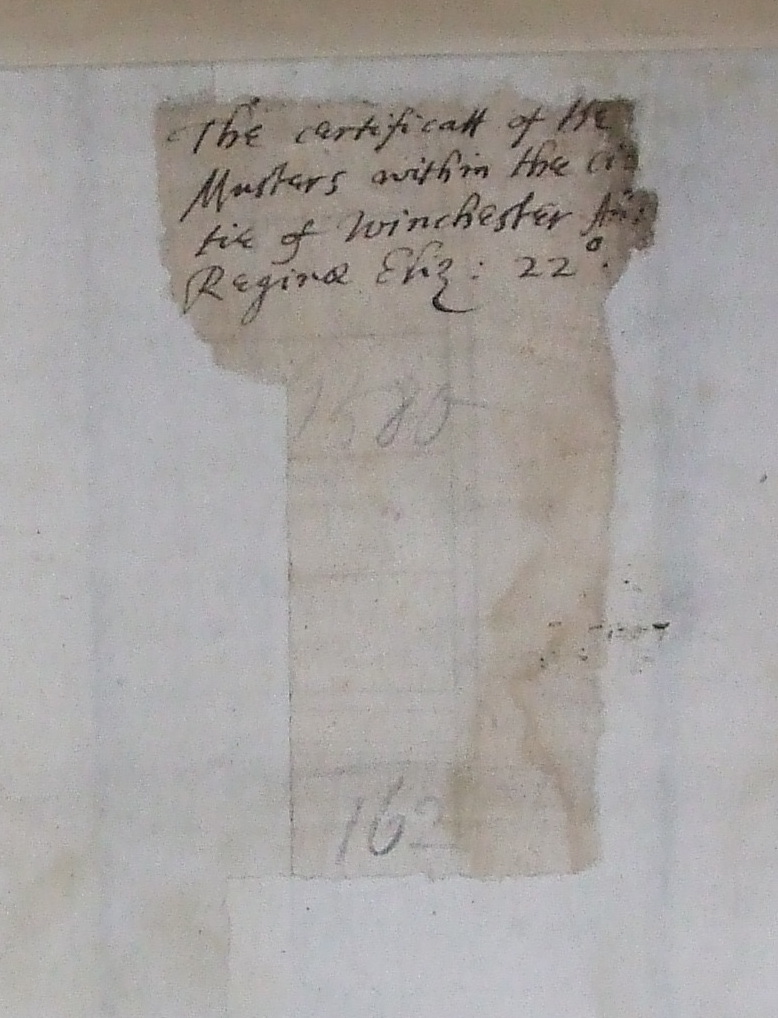 The certificatt of the
Musters within the Ci
tie of Winchester An:
Reginæ Eliz: 22º.
1580
162